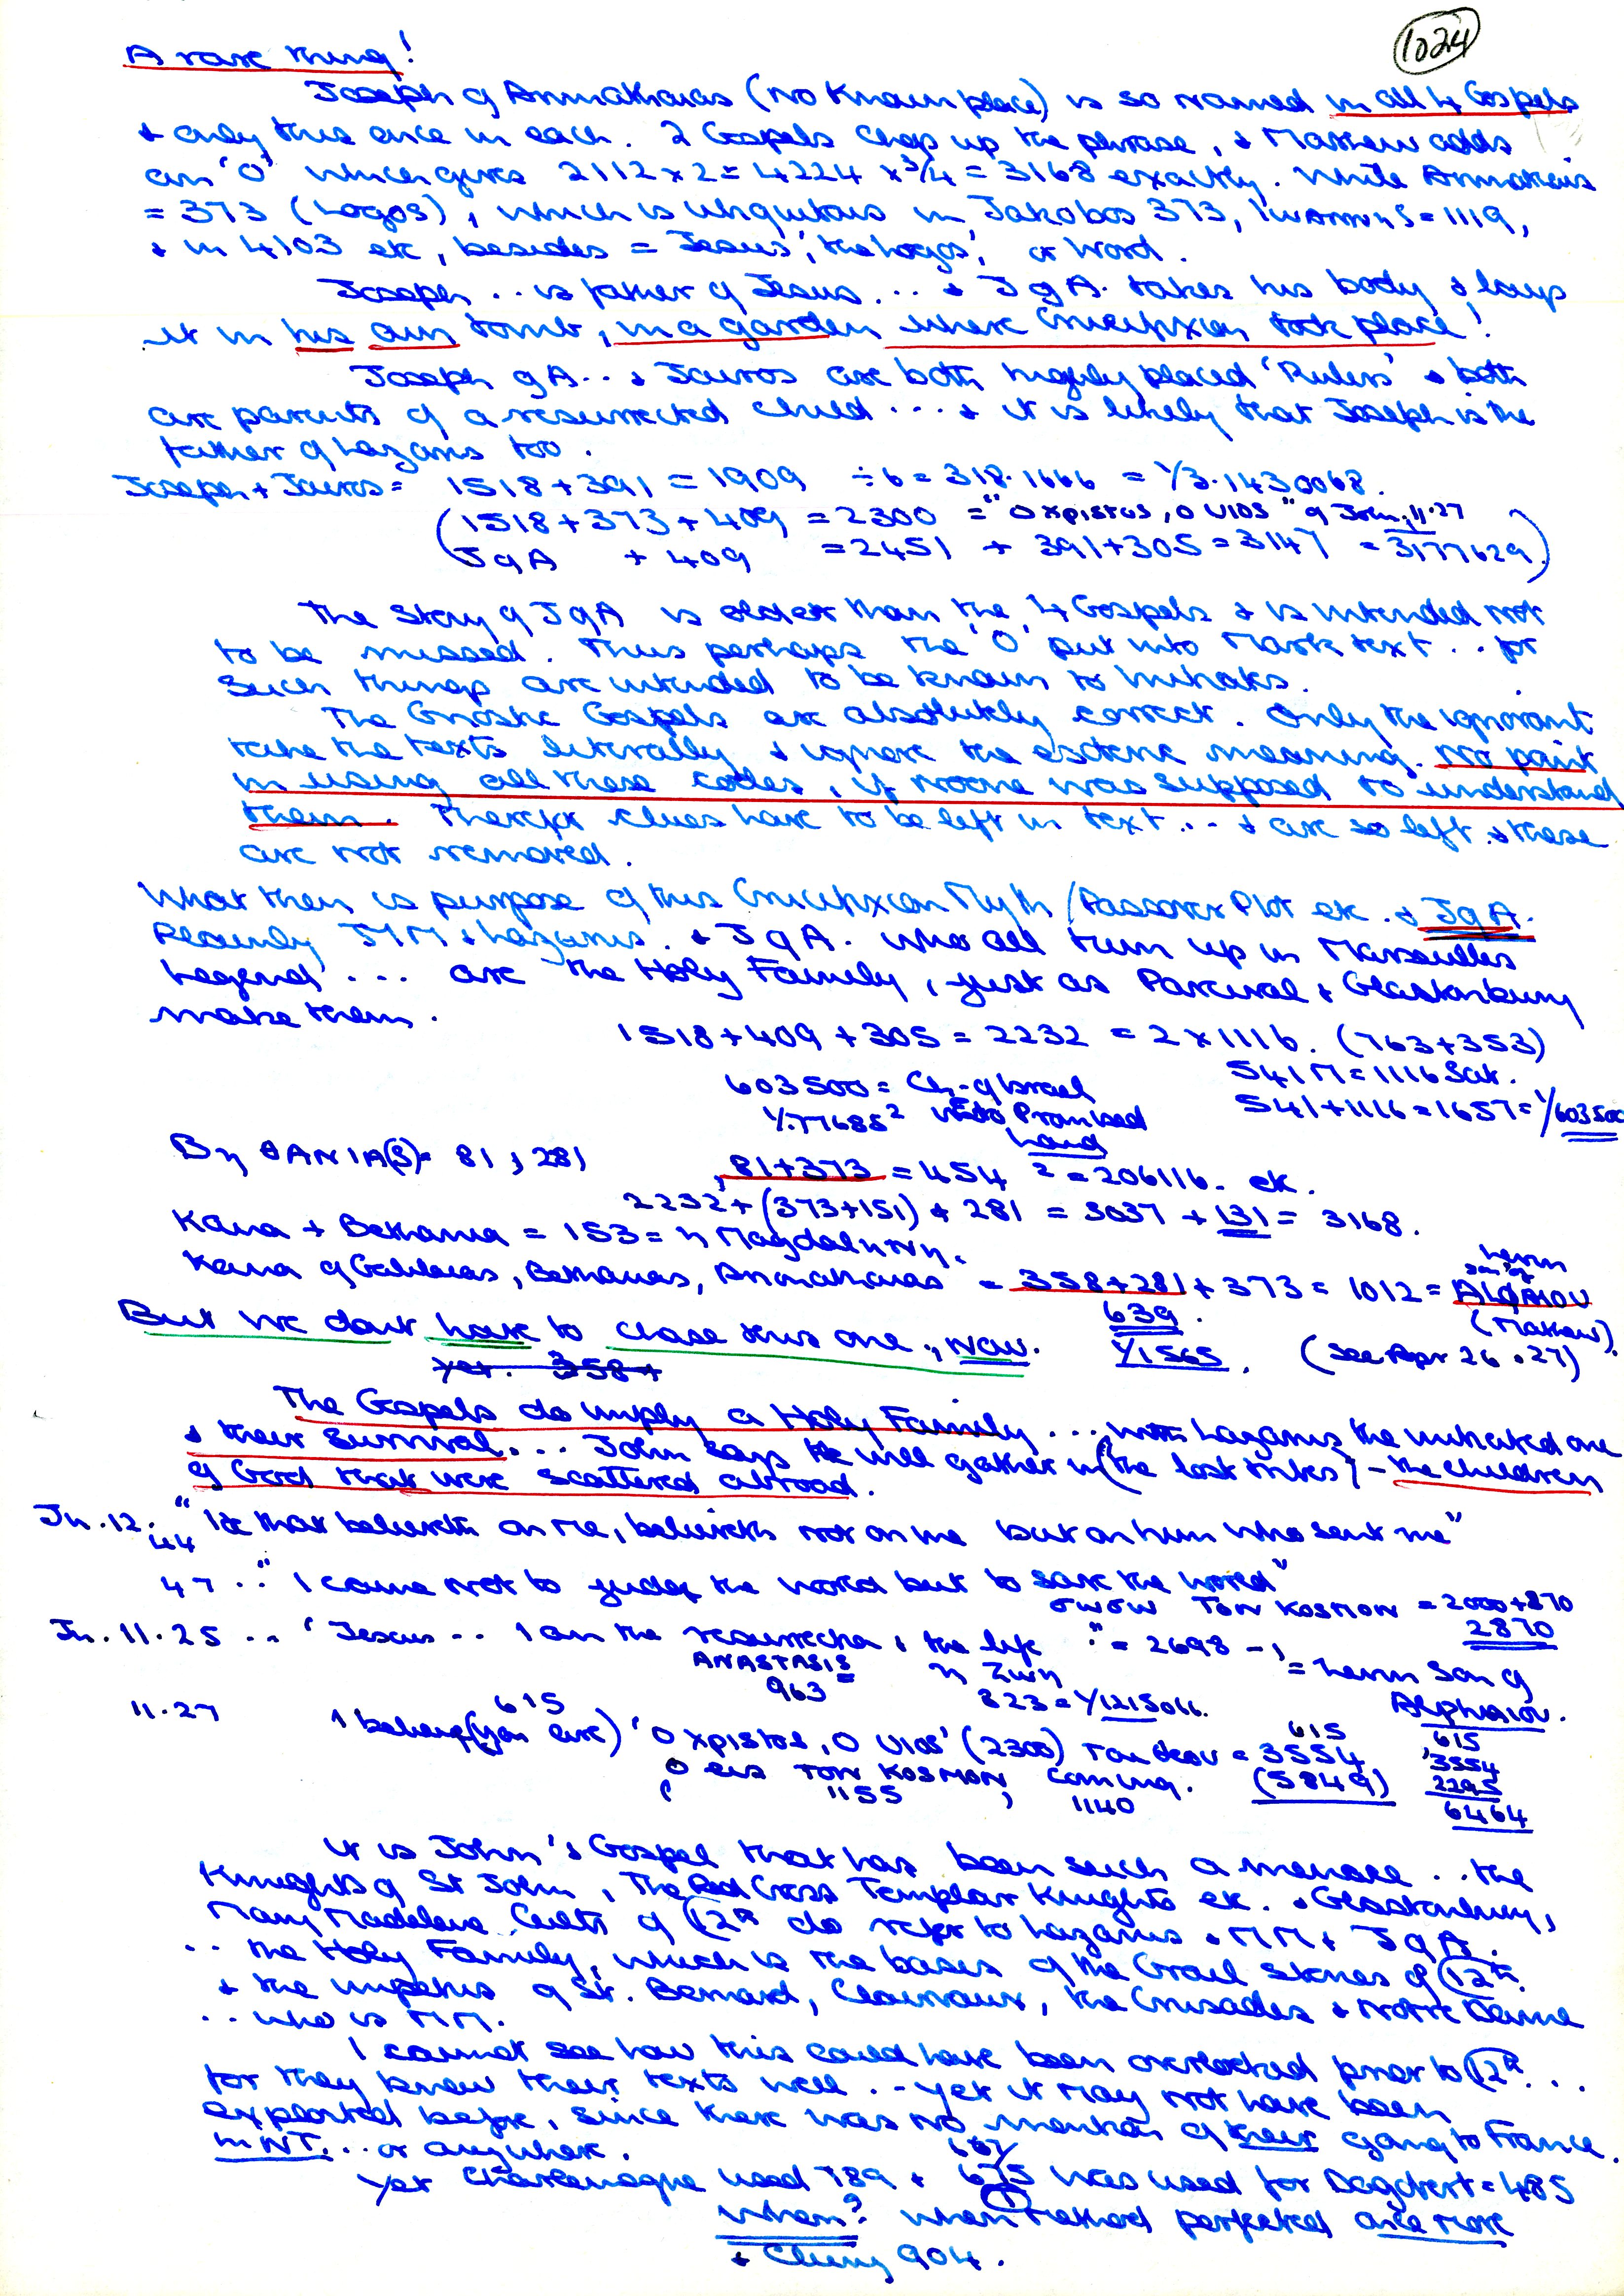 1024
A rare thing!
Joseph of Arimathaias (no known place) is so named in all 4 Gospels
+ only this once in each. 2 Gospels chop up the phrase, + Matthew adds
an 'O' which gives 2112 x 2 = 4224 x 3/4 = 3168 exactly. While Arimathaias
= 373 (Logos), which is ubiquitous in Jakobos 373, = 1119,
+ in 4103 etc, besides = Jesus', 'the Logos', or Word.
Joseph .. is father of Jesus ... + J of A. takes his body + lays
it in his own tomb, in a garden where Crucifixion took place!
Joseph of A... + Jairos are both highly placed 'Rulers' + both
are parents of a resurrected child ... + it is likely that Joseph is the
father of Lazarus too.
Joseph + Jairos = 1518 + 391 = 1909 ÷ 6 = 318.1666 = 1/3.1430068.
(1518 + 373 + 409 = 2300 = "O Xpistos, O Uios" of John, 11.27
J of A + 409 = 2451 + 391 + 305 = 3147 = 3177629.)
The Story of J of A is older than the 4 Gospels + is intended not
to be missed. Thus perhaps the 'O' put into Mark text .. for
Such things are intended to be known to Initiates.
The Gnostic Gospels are absolutely correct. Only the ignorant
take the texts literally + ignore the esoteric meaning. No point
in using all these codes, if noone was supposed to understand
them. Therefore clues have to be left in text ... + are so left + these
are not removed.
What then is purpose of this Crucifixion Myth / Passover Plot etc. + J of A.
Plainly J MM + Lazarus. + J of A. who all turn up in Marseilles
Legend ... are the Holy Family, just as Parcival + Glastonbury
make them.
1518 + 409 + 305 = 2232 = 2 x 1116. (763 + 353)
603500 = Ch. of Israel 541 M = 1116 Sat.
1/.77685² into Promised Land 541 + 1116 = 1657 = 1/603500
BηθANIA(S) = 81, 281 , 81 + 373 = 454 ² = 206116. etc.
2232 + (373 + 151) + 281 = 3037 + 131 = 3168.
Kana + Bethania = 153 = η MagdalηNη.
Kana of Galilaias, Bethanias, Arimathaias = 358 + 281 + 373 = 1012 = Levin son of ALφAIOU
639. (Matthew).
But we don't have to chose this one., now. 1/1565. (See Apr 26 + 27)
yet. 358 +
The Gospels do imply a Holy Family ... with Lazarus the initiated one
+ their survival... John says He will gather in (the lost tribes) - the children
of God that were scattered abroad.
Jn. 12. 44 "He that believeth on Me, believeth not on me but on him who sent me"
47 .. "I came not to judge the world but to save the world"
σωσω TON KOSMON = 2000 + 870
2870
Jn. 11.25 .. 'Jesus .. I am the resurrection, the life " = 2698 - 1 = Levin son of
ANASTASIS η Zωη Alphaiou.
963 823 = 1/1215066.
11.27 615
I believe (you are) 'O Xpistos, O Uios' (2300) Tou Theou = 3554 615
O eis TON KOSMON, coming. (5849) 615 3554 2295 6464
1155 1140
It is John's Gospel that has been such a menace .. the
Knights of St John, The Red Cross Templar Knights etc. + Glastonbury,
Mary Madelene Cults of 12th do refer to Lazarus + MM + J of A.
.. the Holy Family, which is the bases of the Grail stories of 12th.
+ the impetus of St. Bernard, Clairvaux, the Crusades + Notre Dame
.. who is MM.
I cannot see how this could have been overlooked prior to 12th ...
for they knew their texts well .. yet it may not have been
exploited before, since there was no mention of their going to France
in NT... or anywhere.
Yet Charlemagne used 789 + 675 was used for Dagobert = 485
When? when method perfected once more
+ Cluny 904.